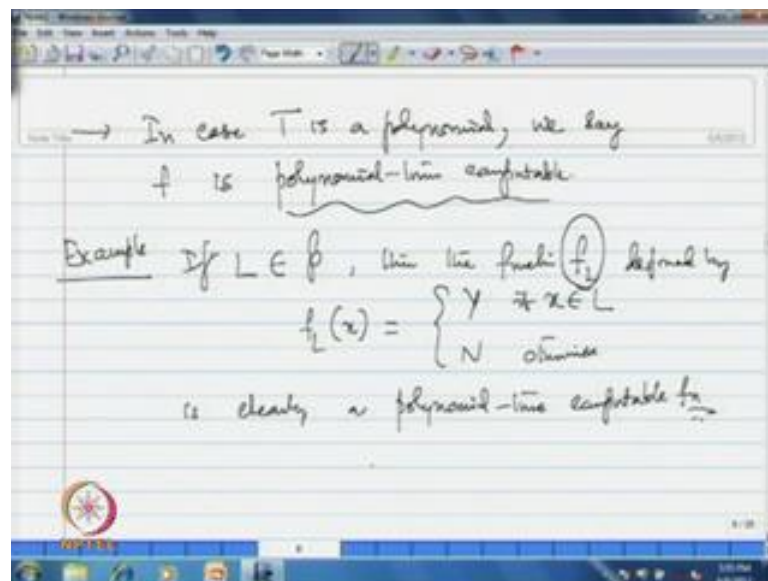 → In case T is a polynomial, we say
f is polynomial-time computable
Example If L ∈ P, then the function f_L defined by
f_L(x) = { Y if x ∈ L
N otherwise
is clearly a polynomial-time computable fn
NPTEL